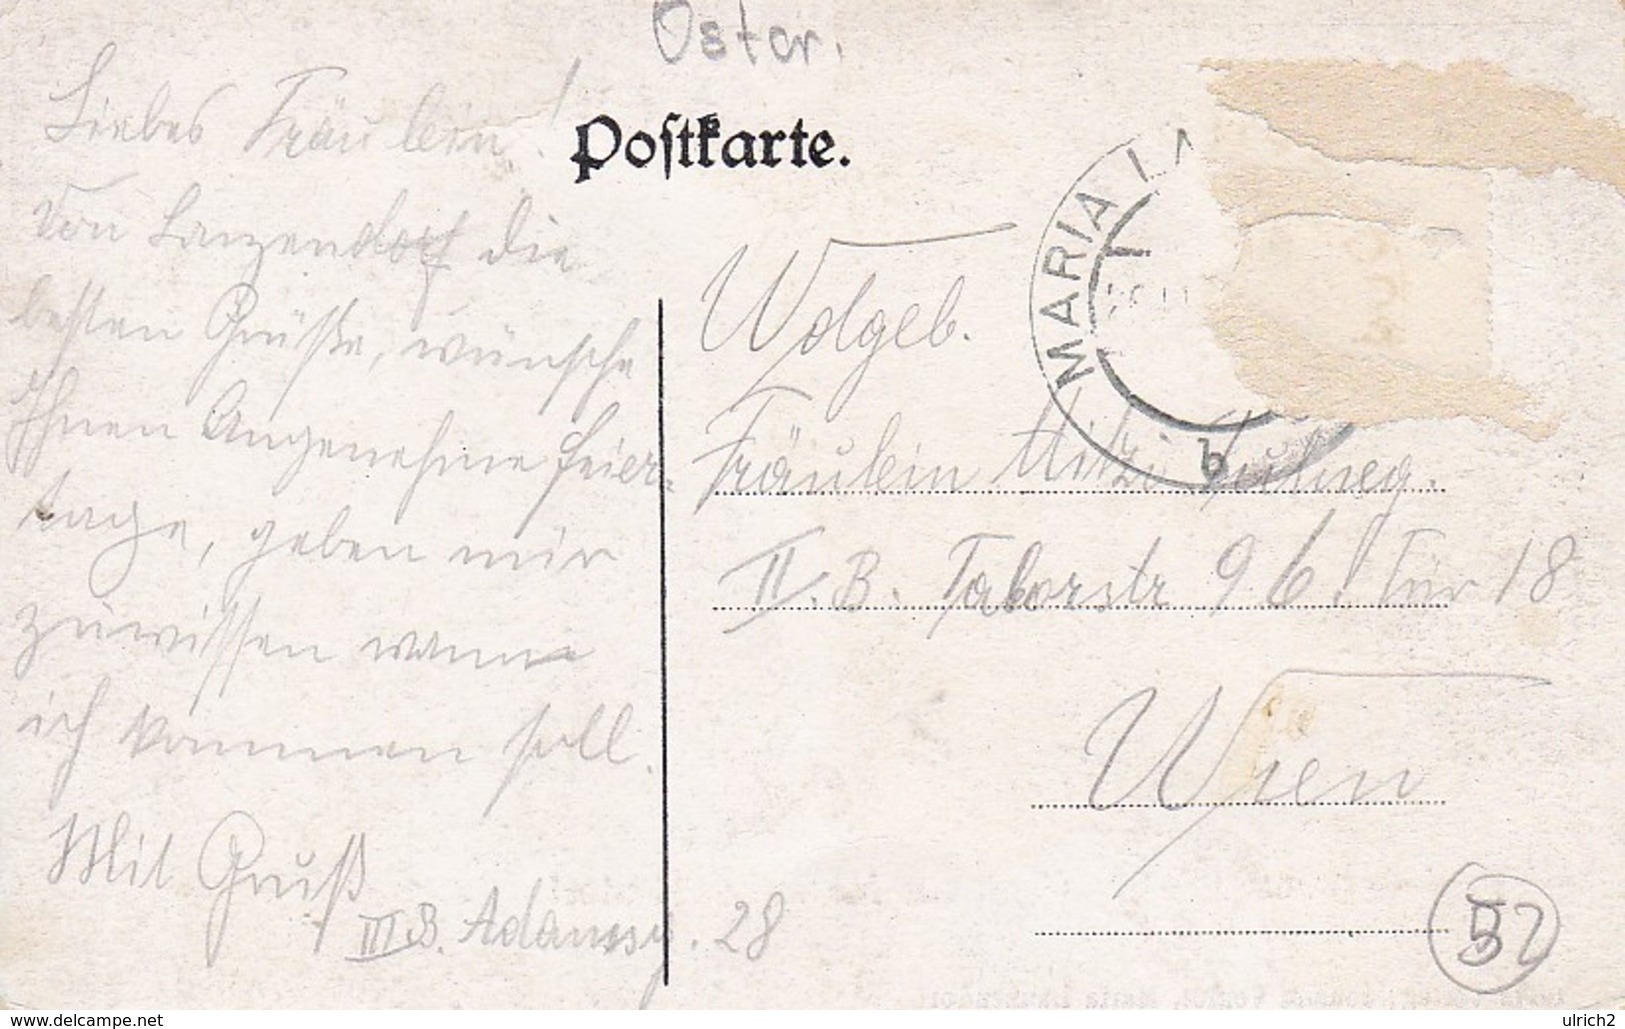 Ostər.
Postkarte.
Liebes Fräulein!
Von Lanzendorf die
besten Grüße, wünsche
Ihnen Angenehme Feier-
tage, geben mir
zuwissen wann
ich kommen soll.
Mit Gruß
III B. 28
MARIA LA
b
Wolgeb.
Fräulein Mitzi
II. B. Taborstr 96! Tür 18
Wien
52
www.delcampe.net
ulrich2